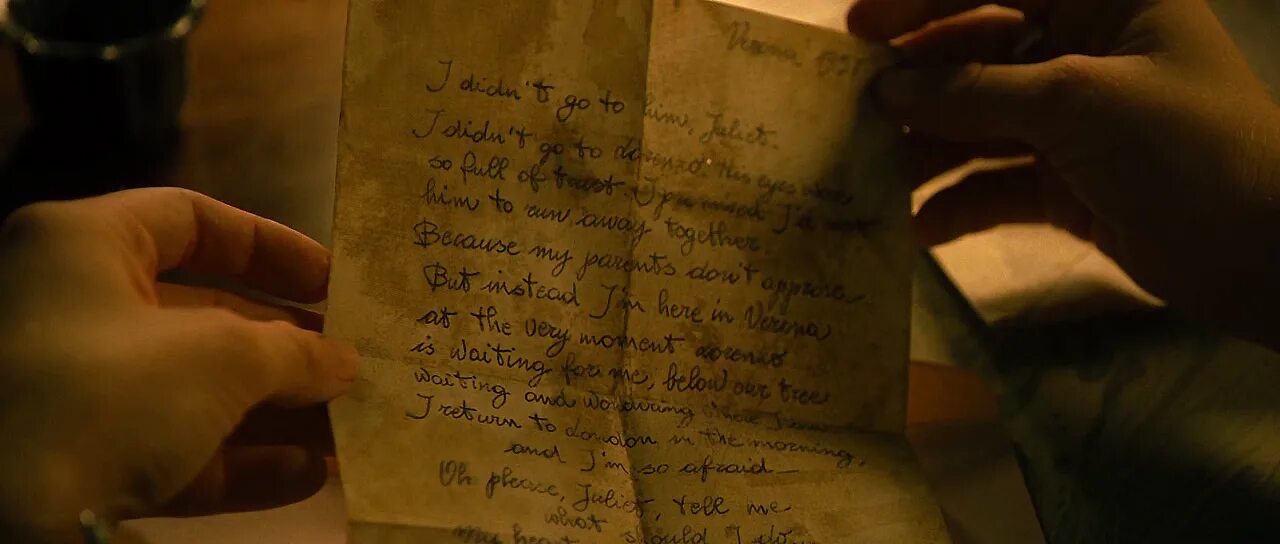 Verona, 1957
I didn't go to him, Juliet.
I didn't go to Lorenzo. His eyes were
so full of trust. I promised I'd meet
him to run away together.
Because my parents don't approve
But instead I'm here in Verona
at the very moment Lorenzo
is waiting for me, below our tree
waiting and wondering where I am
I return to London in the morning,
and I'm so afraid—
Oh please, Juliet, tell me
what should I do.
My heart